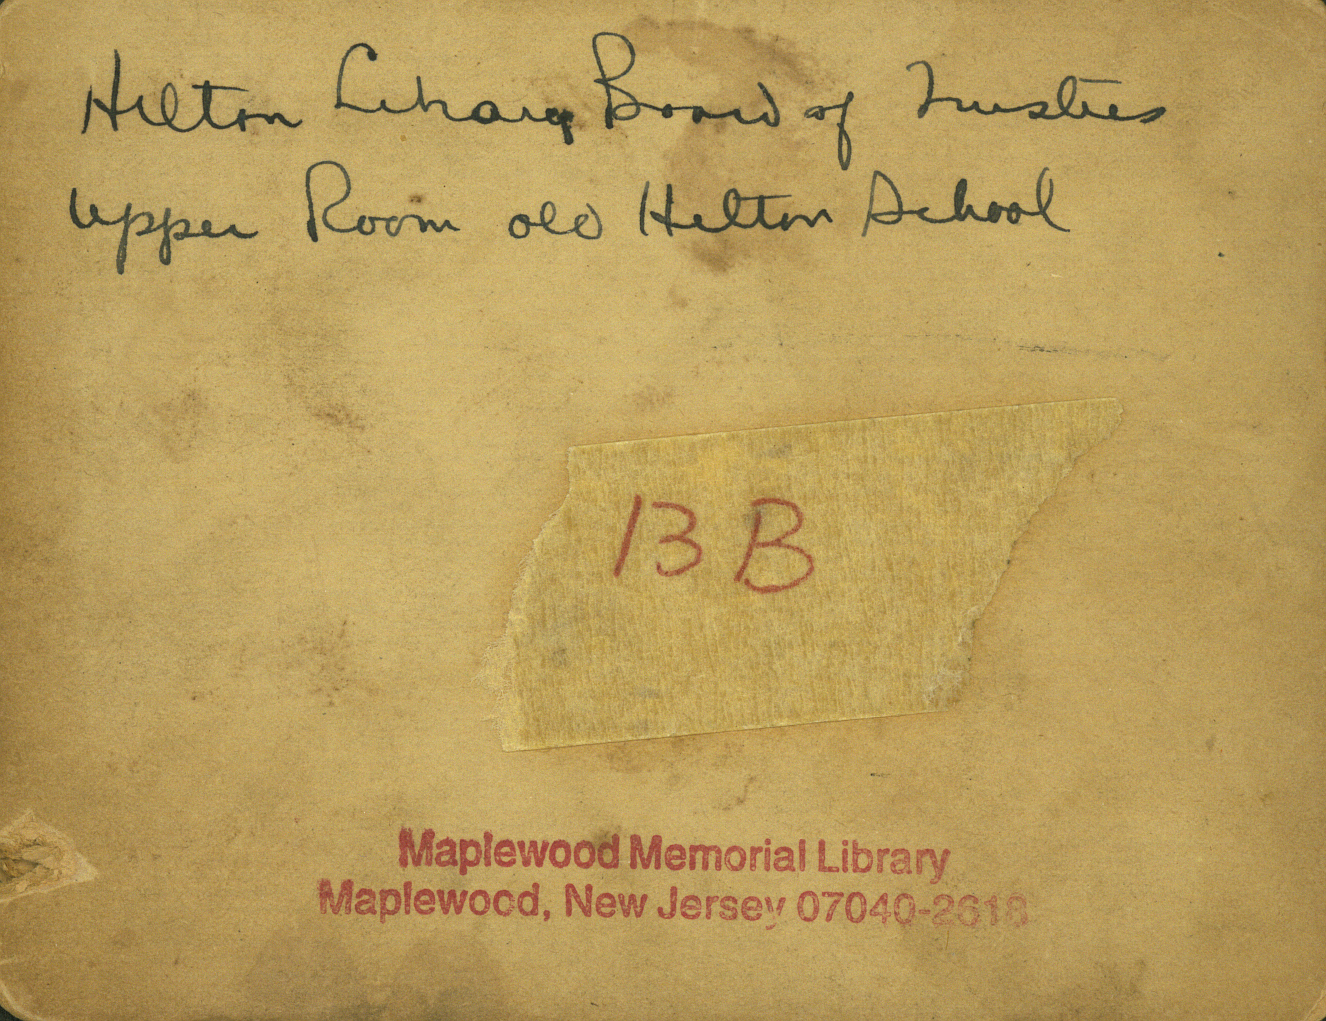 Hilton Library Board of Trustees
Upper Room old Hilton School
13 B
Maplewood Memorial Library
Maplewood, New Jersey 07040-2618